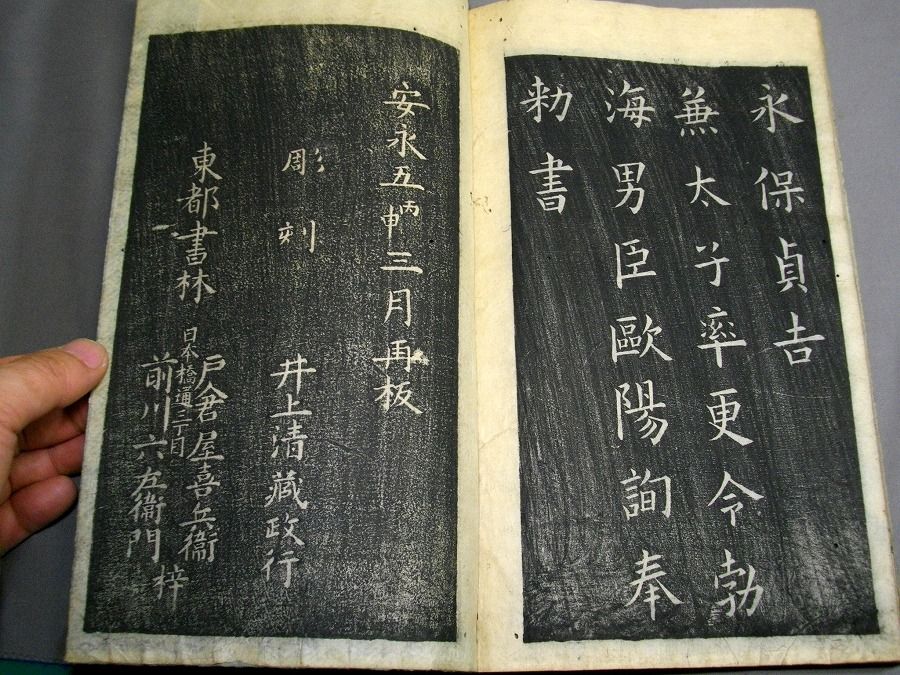 永保貞吉
兼太子率更令勃
海男臣歐陽詢奉
勅書
安永五丙申三月再板
彫刻 井上清藏政行
東都書林
日本橋通三丁目
戸倉屋喜兵衞
前川六左衞門
梓